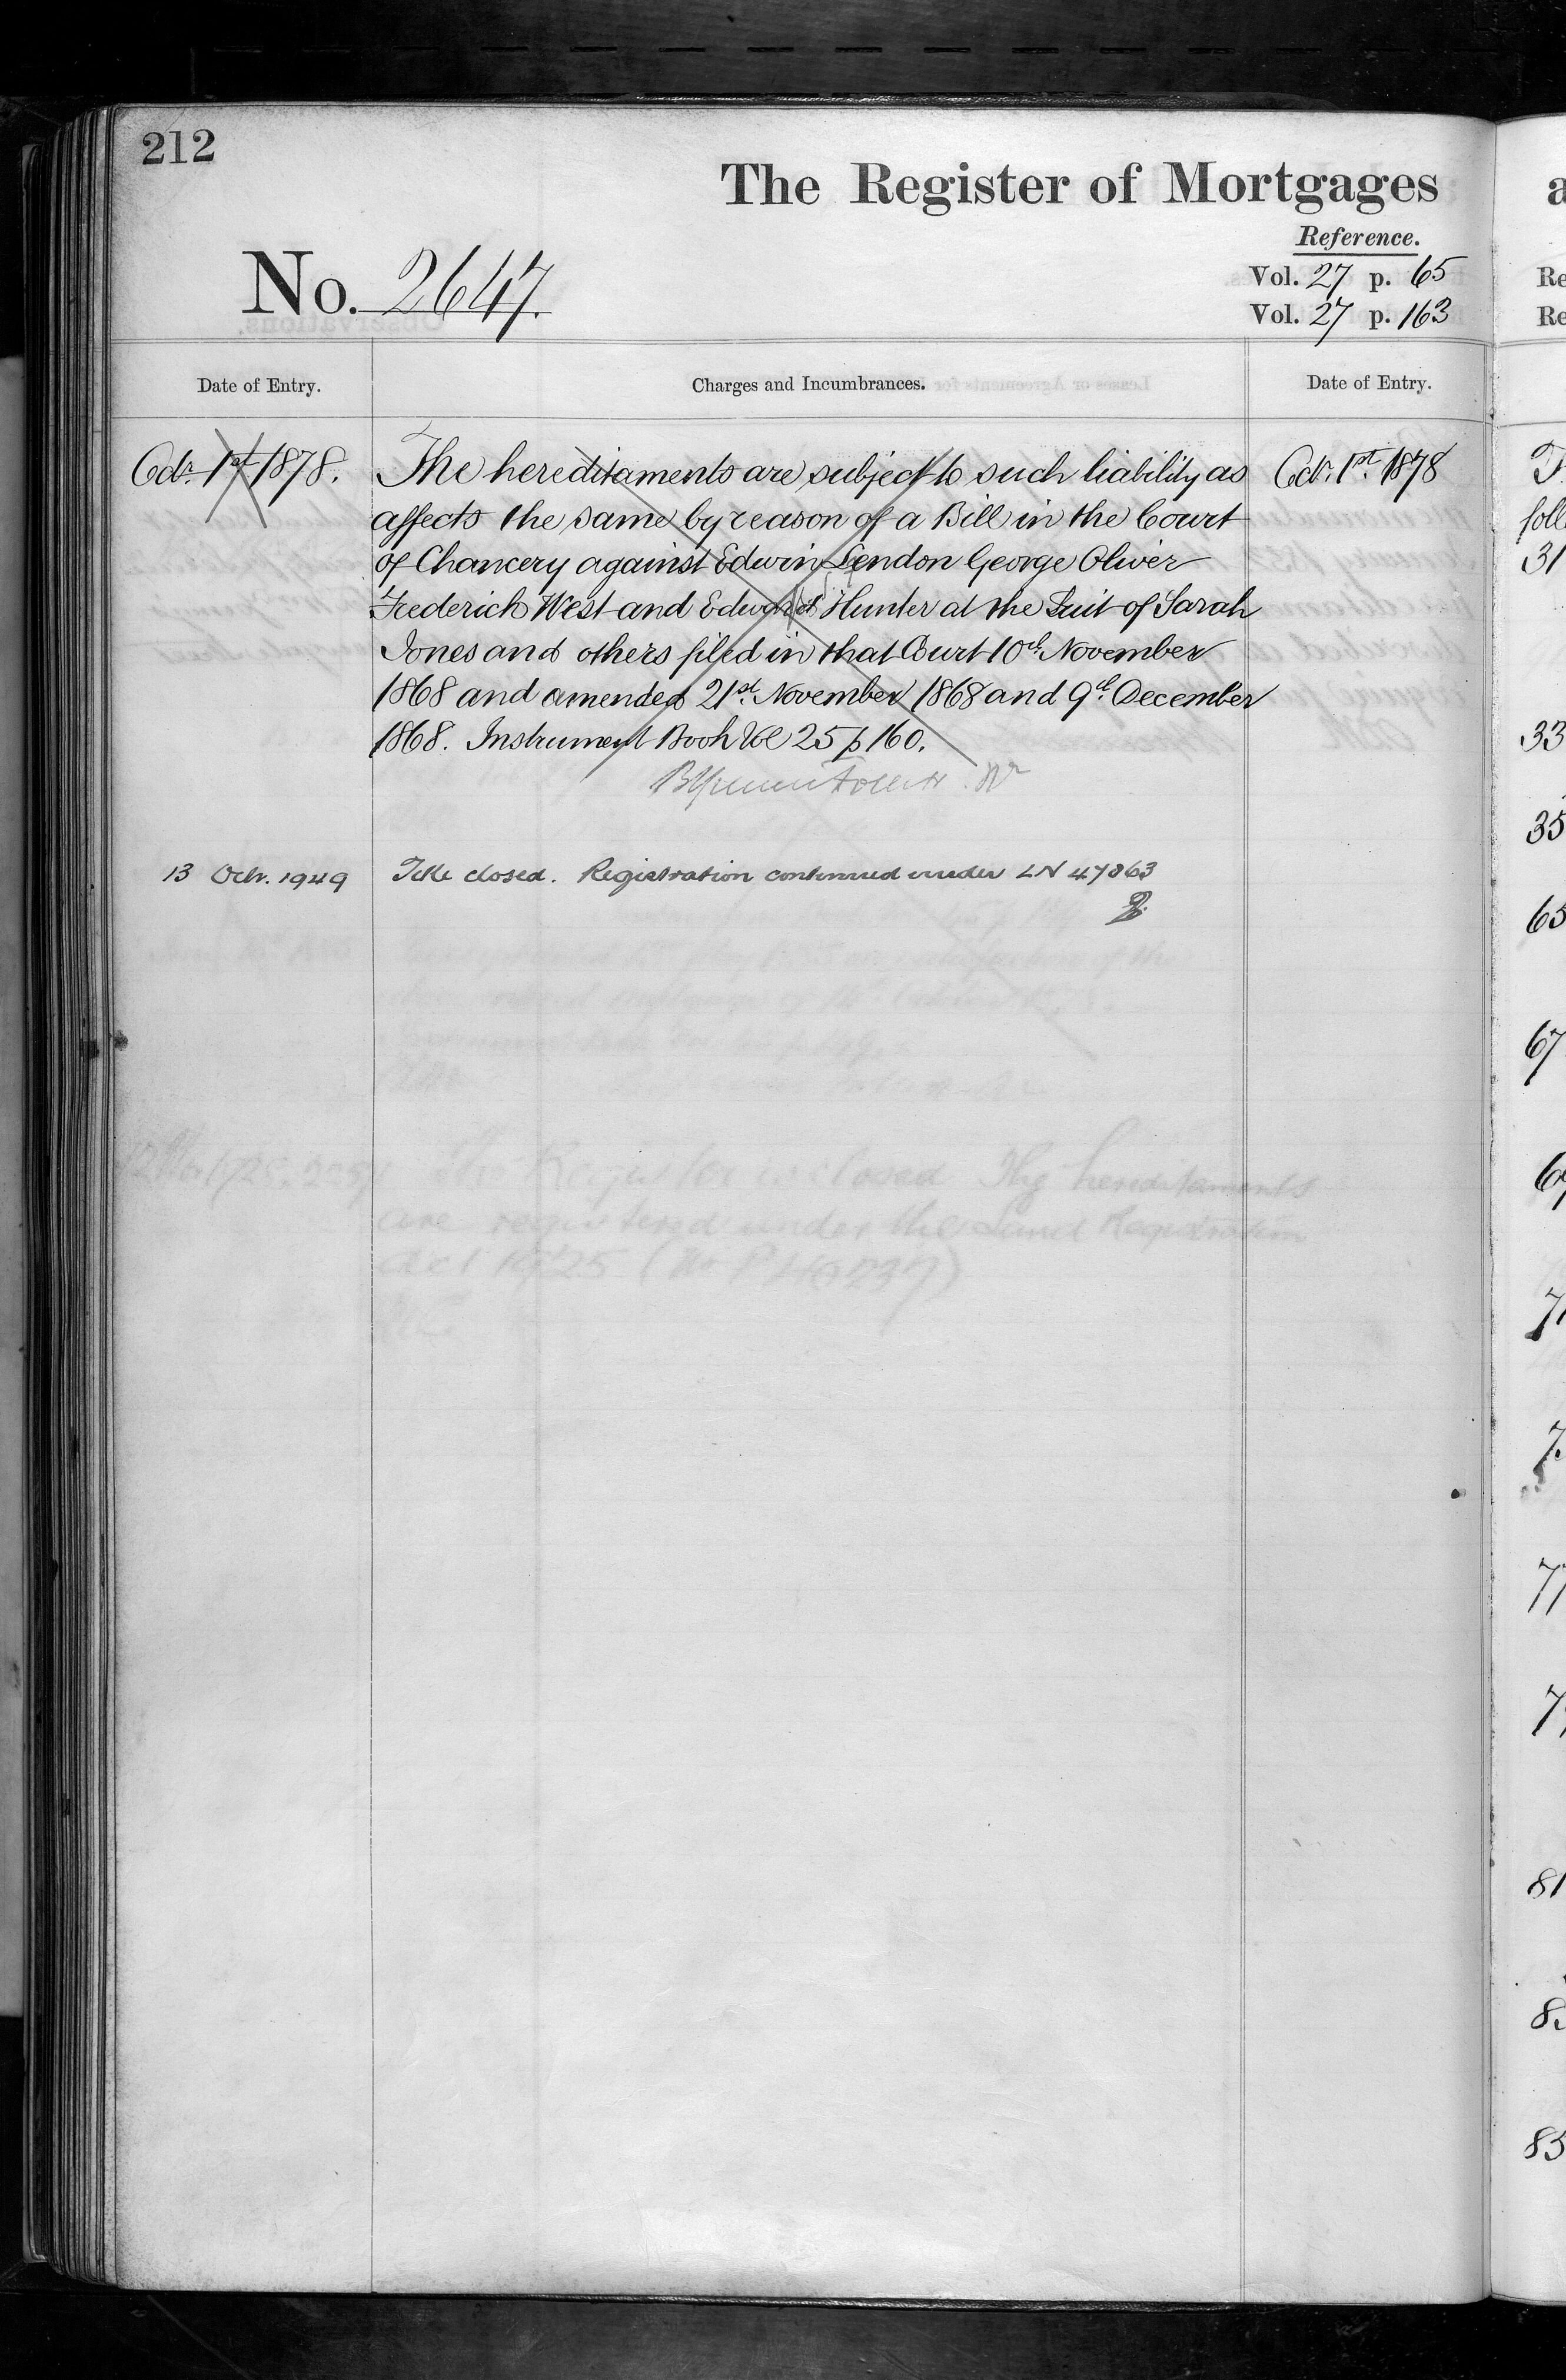 212
The Register of Mortgages
Reference.
No. 2647.
Vol. 27 p. 65
Vol. 27 p. 163
Date of Entry.
Charges and Incumbrances.
Date of Entry.
Octr. 1st 1878.
The hereditaments are subject to such liability as
affects the same by reason of a Bill in the Court
of Chancery against Edwin Lendon George Oliver
Frederick West and Edward Hunter at the Suit of Sarah
Jones and others filed in that Court 10th November
1868 and amended 21st November 1868 and 9th December
1868. Instrument Book Vol 25 p 160.
Octr. 1st 1878
13 Octr. 1949
Title closed. Registration continued under LN 47863
Register is closed The hereditaments
are registered under the Land Registration
Act 1925
31
33
35
65
67
81